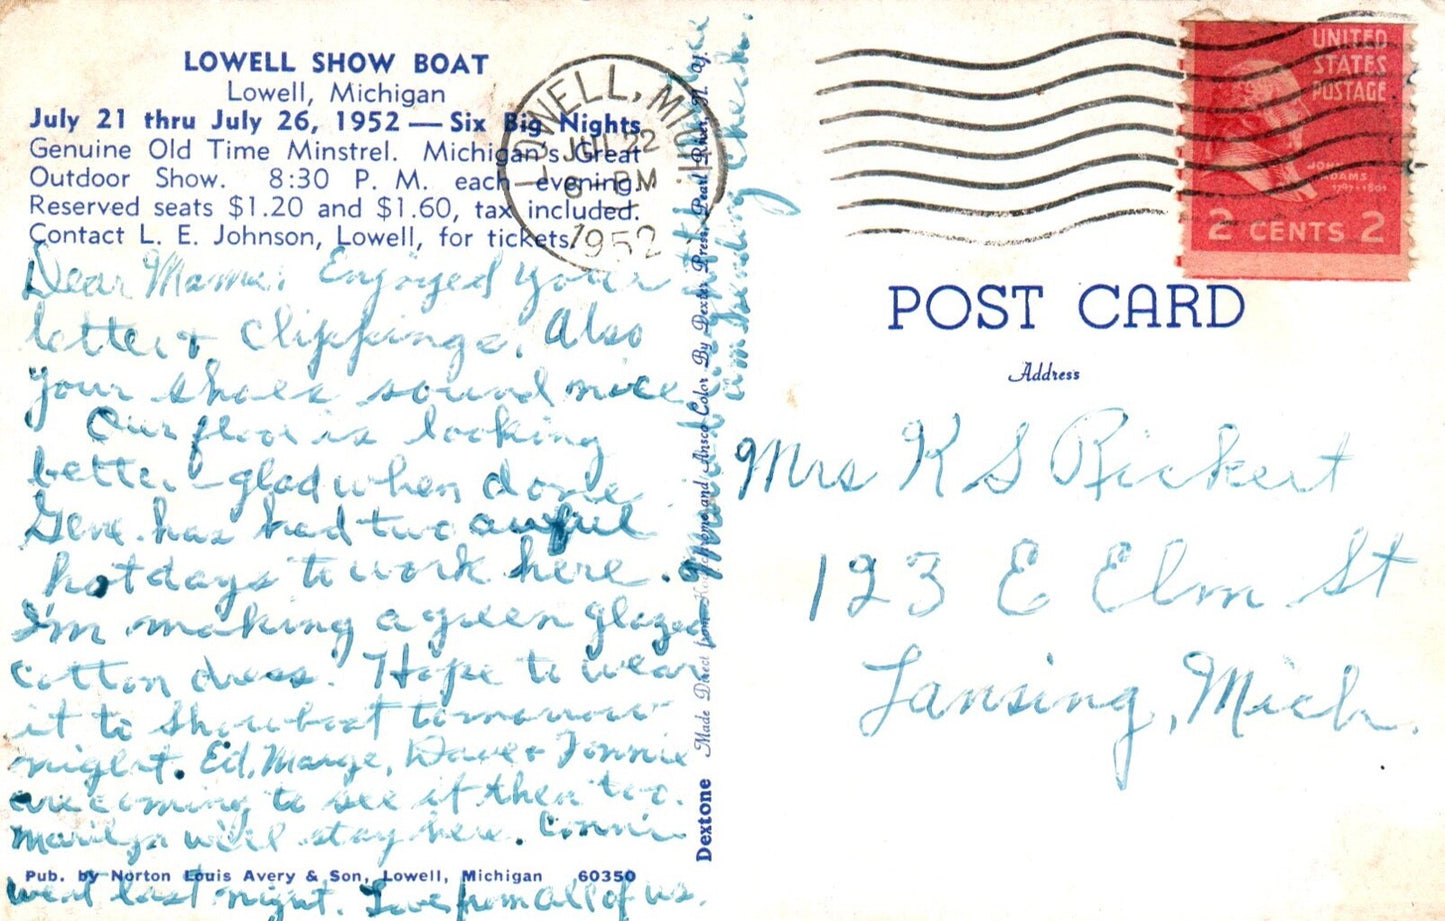 LOWELL SHOW BOAT
Lowell, Michigan
July 21 thru July 26, 1952 — Six Big Nights
Genuine Old Time Minstrel. Michigan's Great
Outdoor Show. 8:30 P. M. each evening.
Reserved seats $1.20 and $1.60, tax included.
Contact L. E. Johnson, Lowell, for tickets.
Dear Mama: Enjoyed your
letter & clippings. Also
your shoes sound nice
Our floor is looking
better - glad when done
Gene has had two awful
hot days to work here.
I'm making a green glazed
cotton dress. Hope to wear
it to Showboat tomorrow
night. Ed, Marge, Dave &
are coming to see it then too.
Marilyn will stay here. Connie
Pub. by Norton Louis Avery & Son, Lowell, Michigan 60350
went last night. Love from all of us.
am sending check.
Dextone Made Direct from and Ansco Color By Dexter Press, Pearl River, N. Y.
LOWELL, MICH.
JUL 22
PM
1952
UNITED
STATES
POSTAGE
JOHN
ADAMS
1797-1801
2 CENTS 2
POST CARD
Address
Mrs K S Rickert
123 E Elm St
Lansing, Mich.